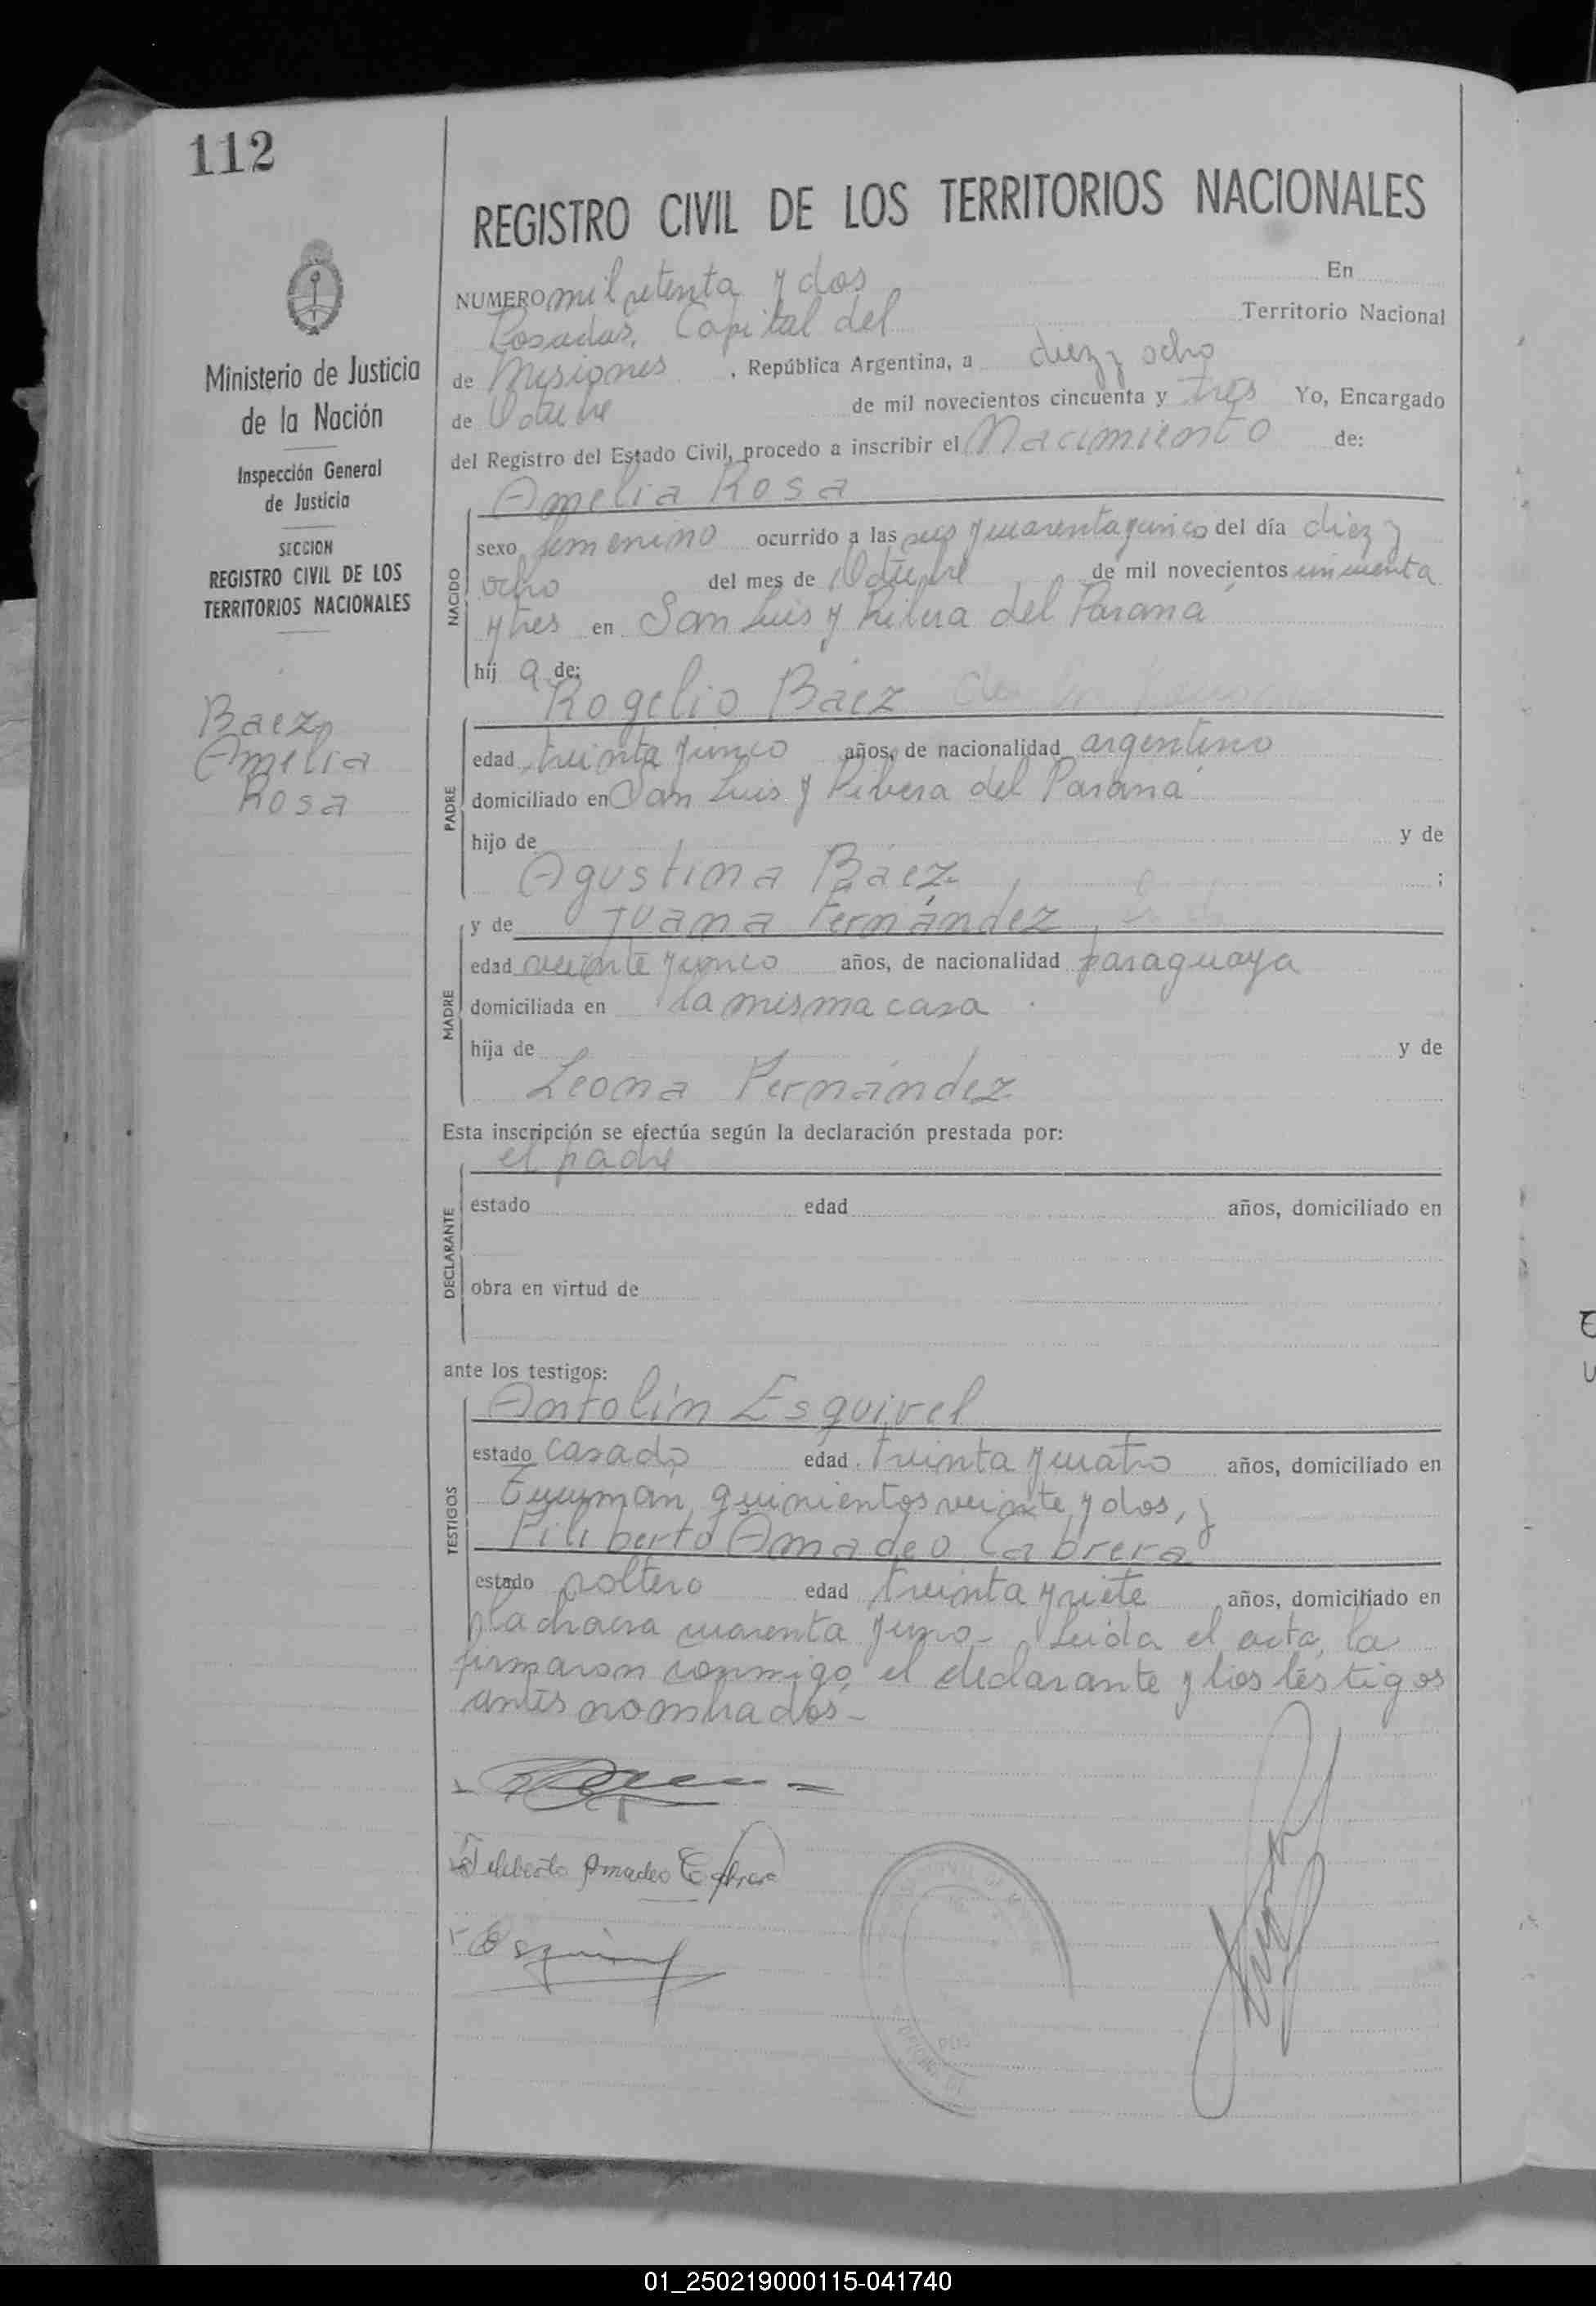 112
REGISTRO CIVIL DE LOS TERRITORIOS NACIONALES
NUMERO mil setenta y dos En
Posadas, Capital del Territorio Nacional
de Misiones, República Argentina, a diez y ocho
de Octubre de mil novecientos cincuenta y tres Yo, Encargado
del Registro del Estado Civil, procedo a inscribir el Nacimiento de:
Amelia Rosa
NACIDO
sexo femenino ocurrido a las seis y cuarenta y cinco del día diez y
ocho del mes de Octubre de mil novecientos cincuenta
y tres en San Luis y Ribera del Paraná
hij a de:
Rogelio Báez
PADRE
edad treinta y cinco años, de nacionalidad argentino
domiciliado en San Luis y Ribera del Paraná
hijo de y de
Agustina Báez ;
y de Juana Fernández
MADRE
edad veinte y cinco años, de nacionalidad paraguaya
domiciliada en la misma casa
hija de y de
Leona Fernández
Esta inscripción se efectúa según la declaración prestada por:
el padre
DECLARANTE
estado edad años, domiciliado en
obra en virtud de
ante los testigos:
Antolín Esquivel
TESTIGOS
estado casado edad treinta y cuatro años, domiciliado en
Tucumán quinientos veinte y dos, y
Filiberto Amadeo Cabrera
estado soltero edad treinta y siete años, domiciliado en
la chacra cuarenta y uno - Leída el acta, la
firmaron conmigo, el declarante y los testigos
antes nombrados -
Filiberto Amadeo Cabrera
Esquivel
Ministerio de Justicia
de la Nación
Inspección General
de Justicia
SECCION
REGISTRO CIVIL DE LOS
TERRITORIOS NACIONALES
Baez,
Amelia
Rosa
01_250219000115-041740